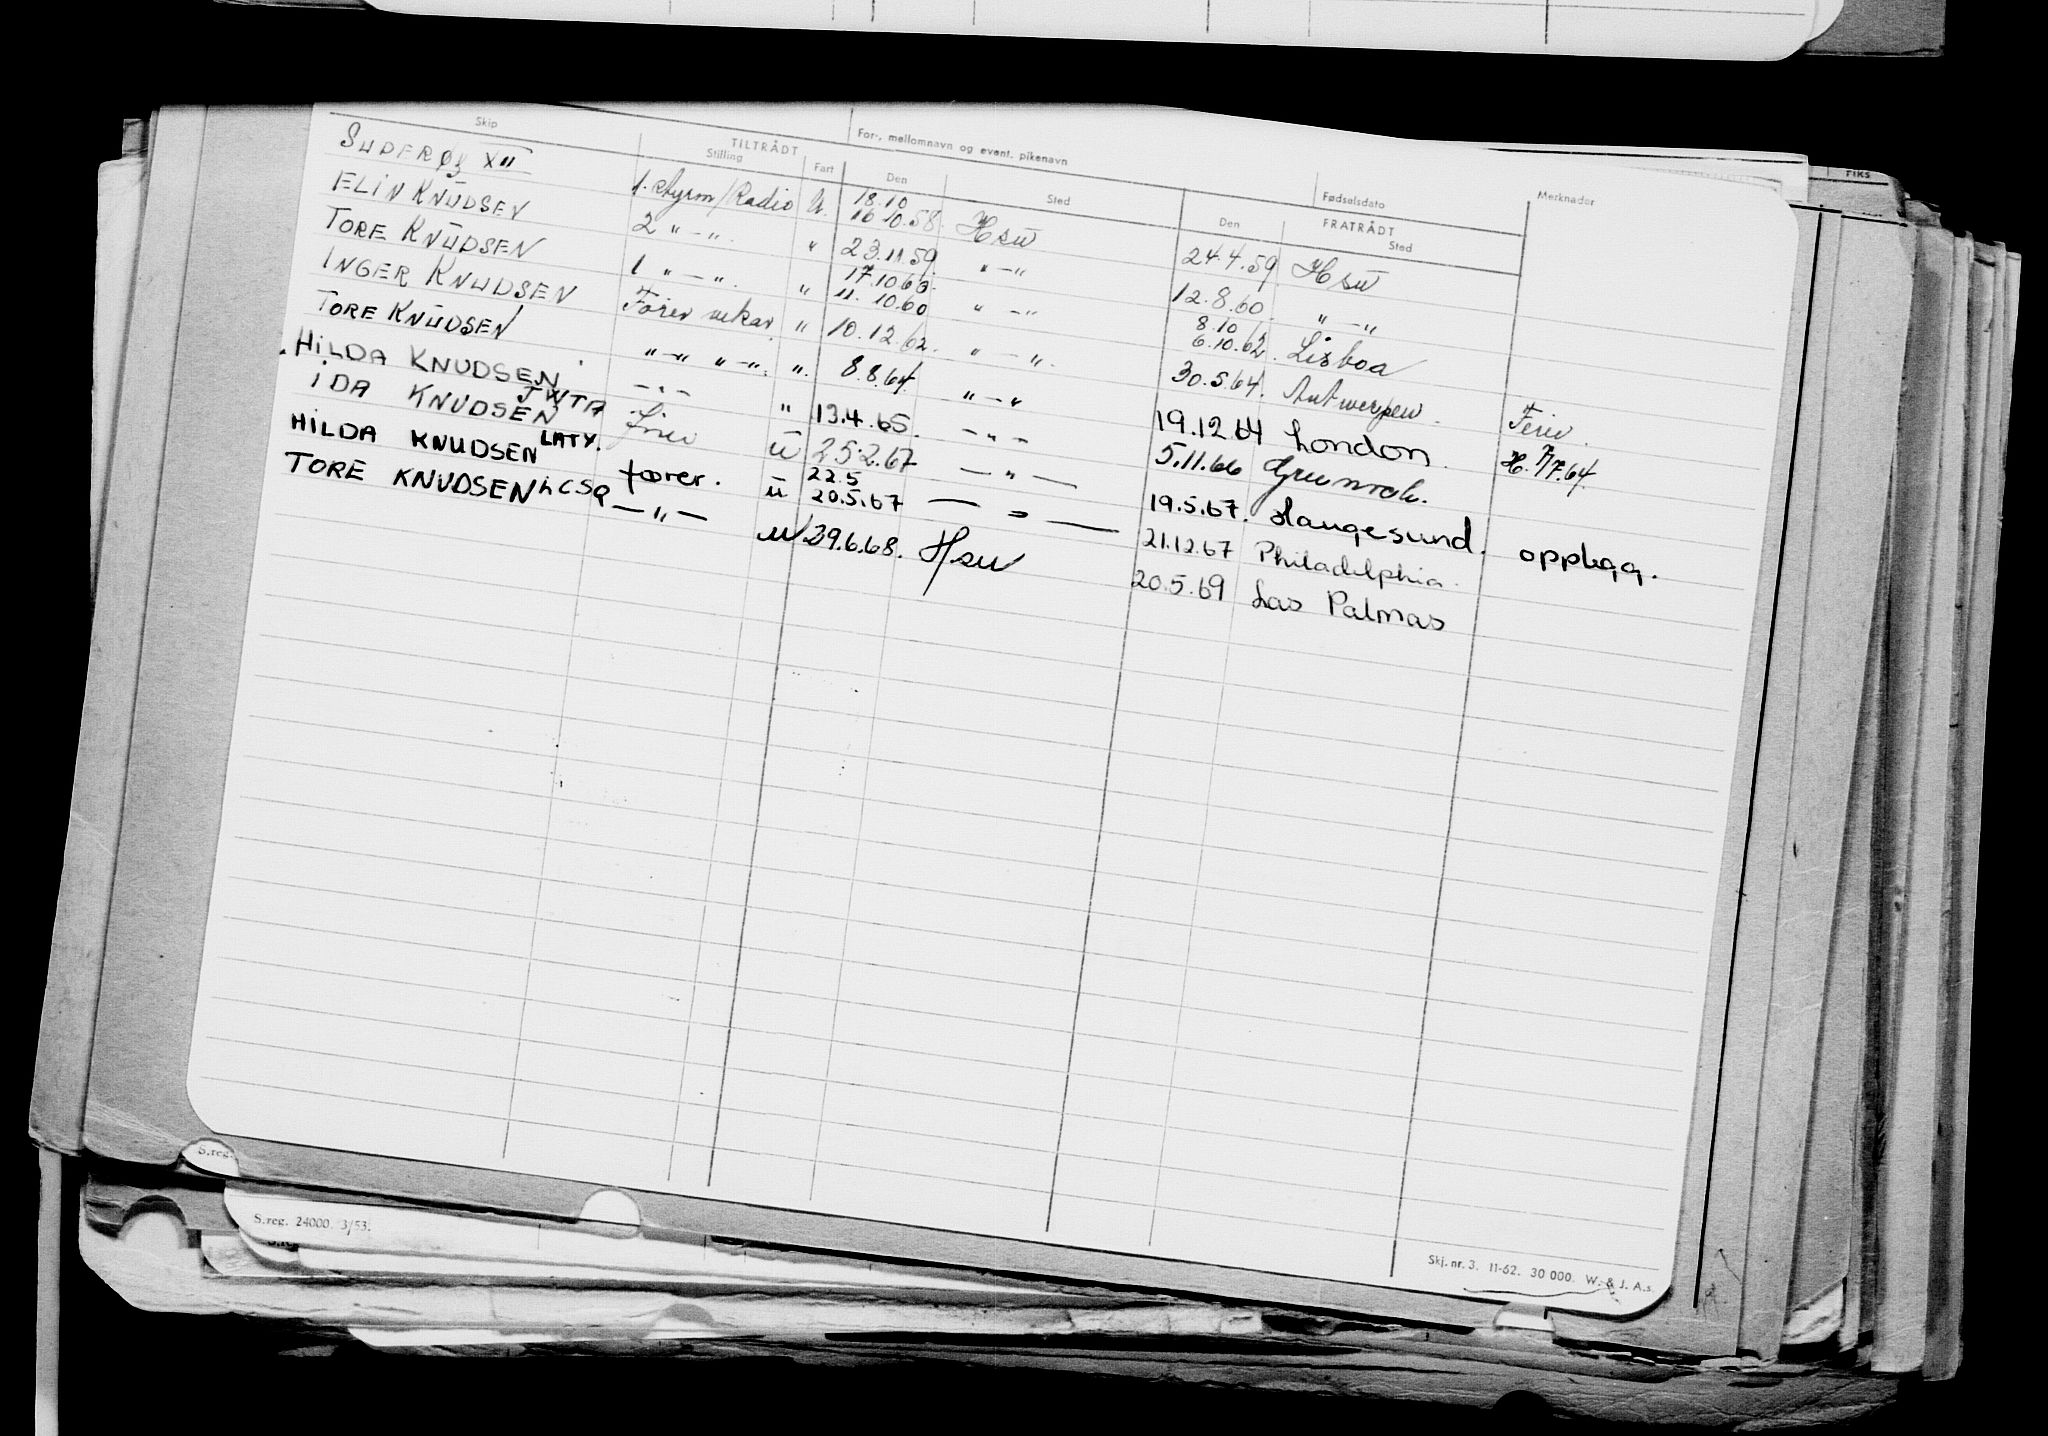 FIKS
Skip
TILTRÅDT
Stilling
Fart
Den
Sted
For-, mellomnavn og event. pikenavn
Fødselsdato
FRATRÅDT
Den
Sted
Merknader
SUDERØY XII 1. styrm/Radio U. 18.10 16.10.58. Hsu 24.4.59 Hsu
ELIN KNUDSEN 2 " — " . " 23.11.59. " — " 12.8.60 " — "
TORE KNUDSEN 1 " — " . " 17.10.60. 11.10.60 " — " 8.10 6.10.62. Lisboa
INGER KNUDSEN Fører vikar " 10.12.62. " — " . 30.5.64. Antwerpen. Ferie.
TORE KNUDSEN " — " " — " . " . 8.8.64. " — " 19.12.64 London. H. 7/7.64.
HILDA KNUDSEN JWTA — " — " 13.4.65. — " — 5.11.66
IDA KNUDSEN LATY. fører ü 25.2.67 — " — 19.5.67. Haugesund. opplegg.
HILDA KNUDSEN LCSQ fører. ü 22.5 20.5.67 — " — 21.12.67 Philadelphia.
TORE KNUDSEN — " — 29.6.68. Hsu 20.5.69 Las Palmas
S.reg.
S.reg. 24000. 3/53.
Skj. nr. 3. 11-62. 30 000. W. & J. A.s.